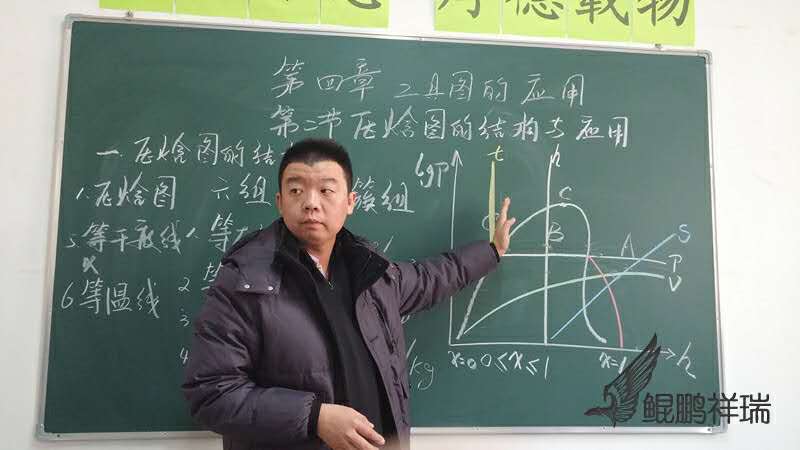 厚德载物
第四章 工具图的应用
第二节 压焓图的结构与应用
一.压焓图的结
1.压焓图 六组 簇组
5等干度线 1等
x 2等
6等温线 3
4 kg
lgp t h
C
B A S
P
V
x=0 0≤x≤1 x=1 h
鲲鹏祥瑞